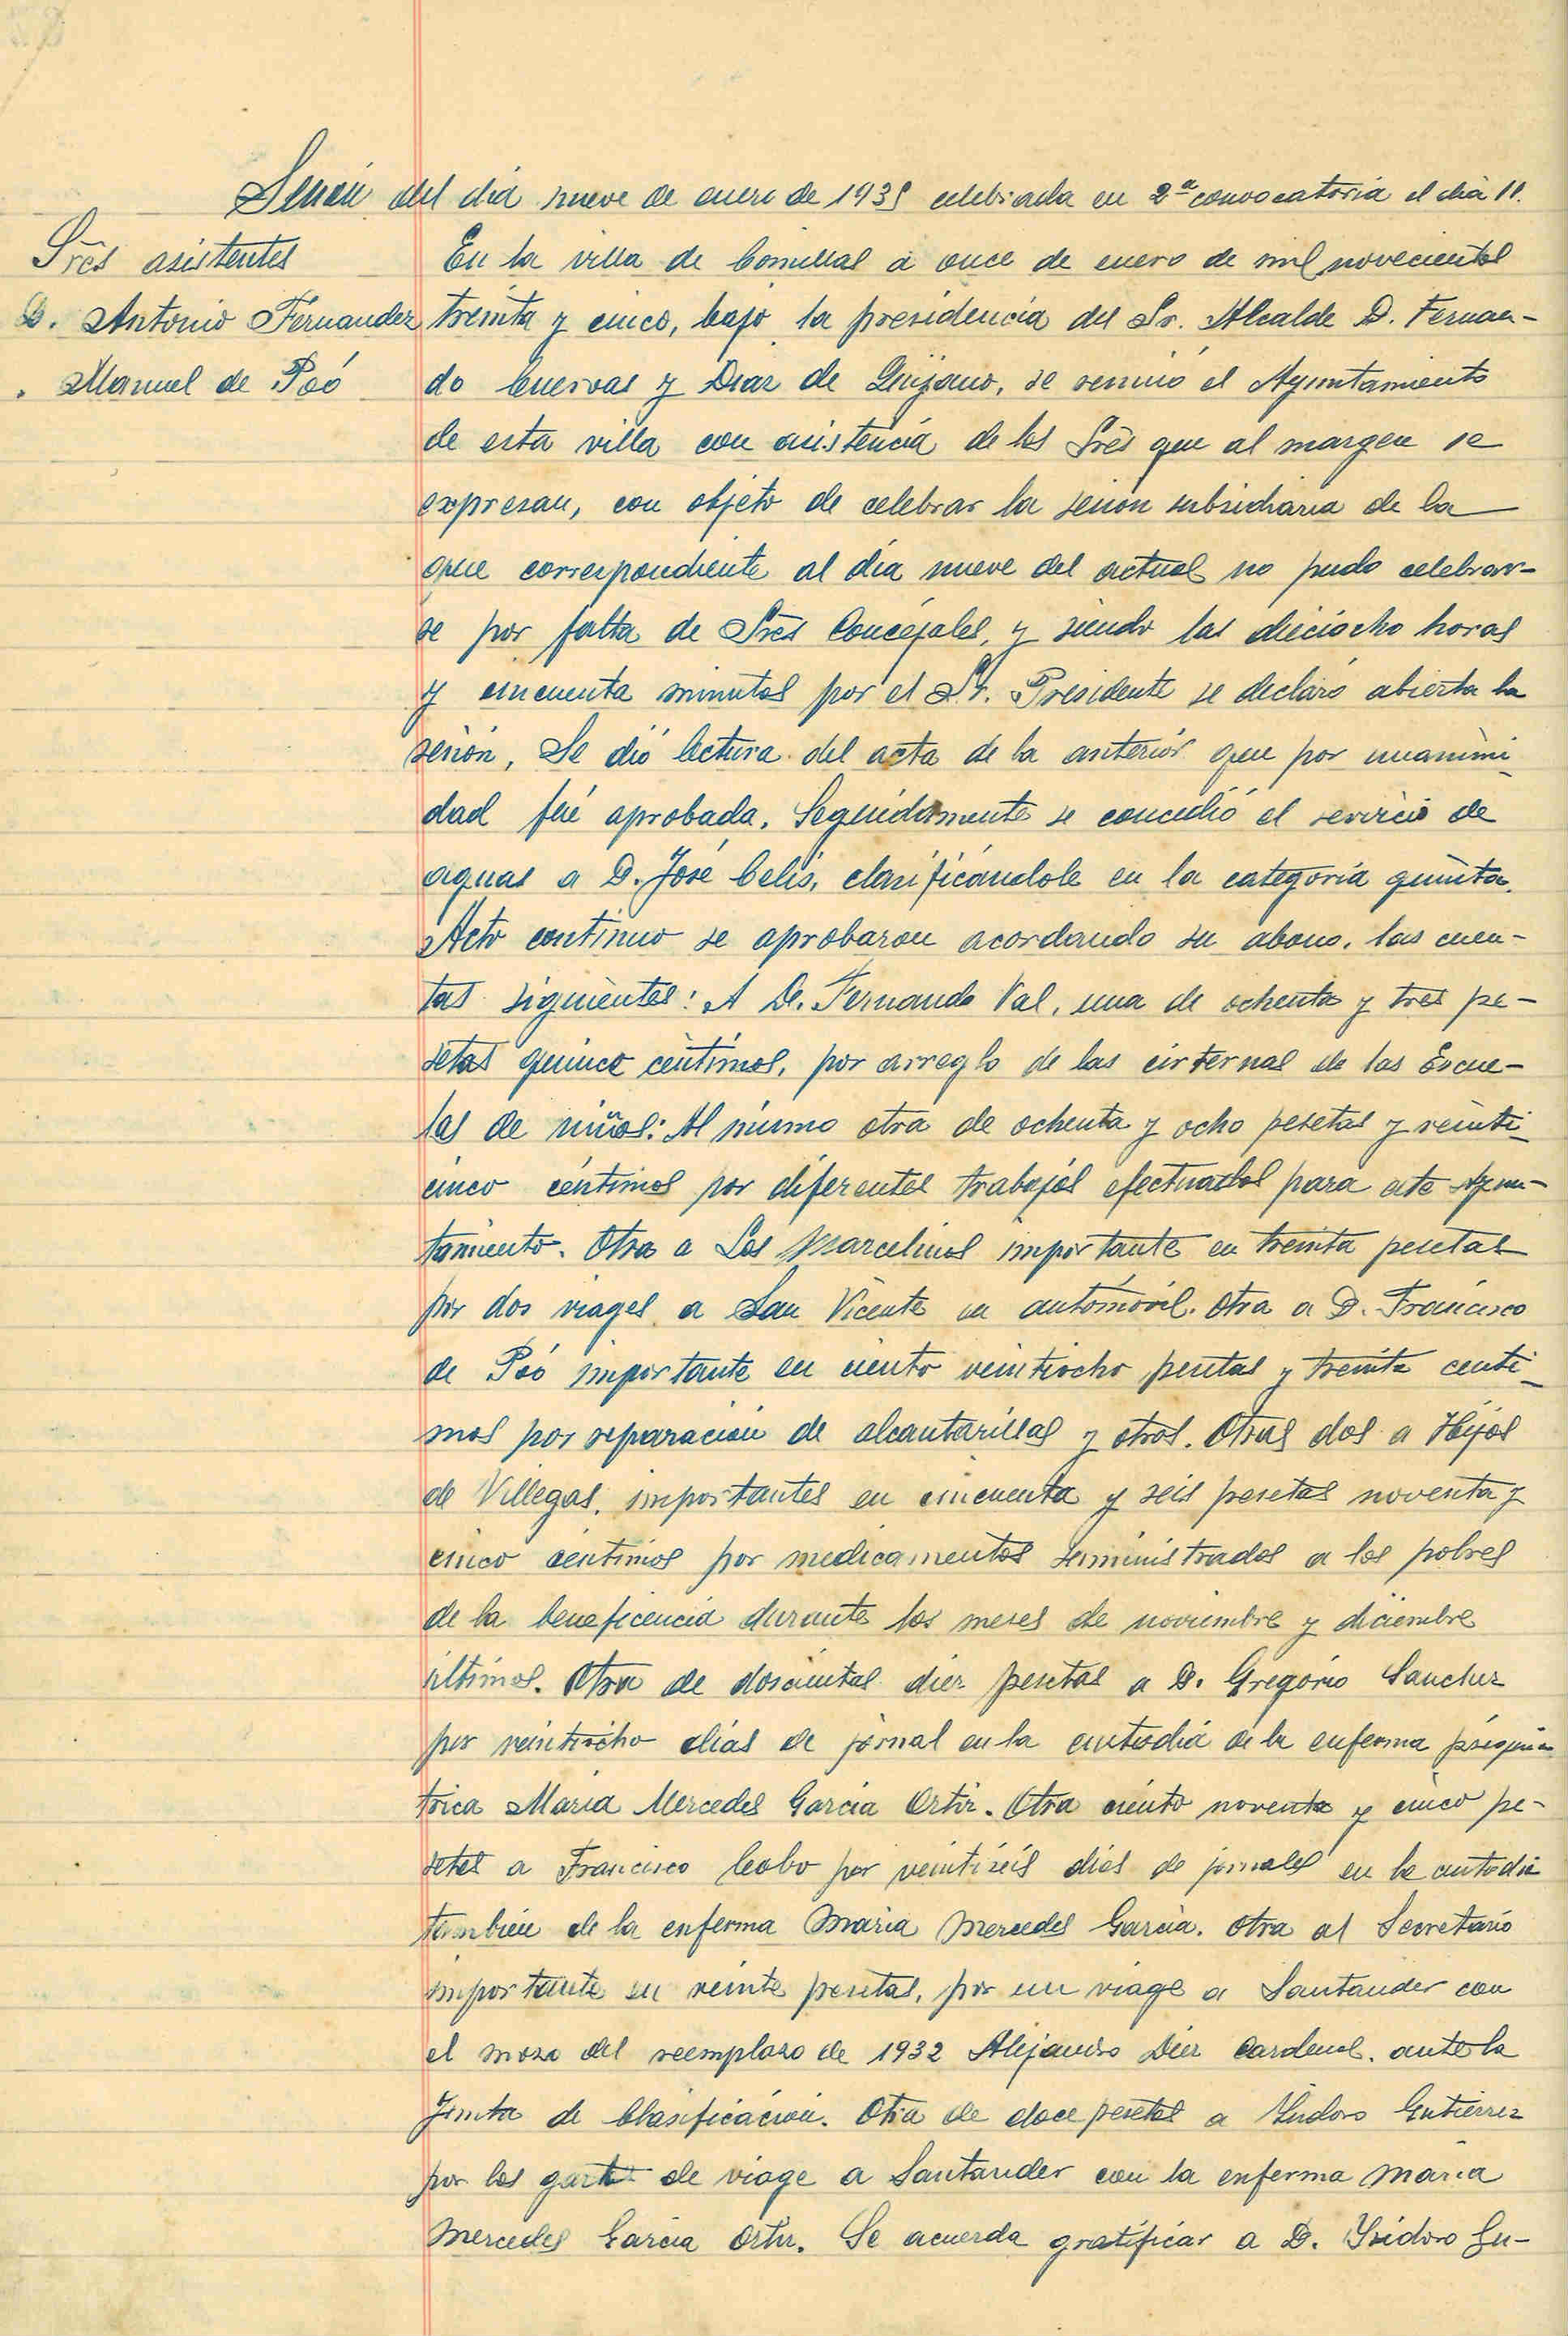 Sesión del dia nueve de enero de 1935 celebrada en 2ª convocatoria el dia 11.
Sres asistentes
D. Antonio Fernandez
. Manuel de Poó
En la villa de Comillas a once de enero de mil novecientos
treinta y cinco, bajo la presidencia del Sr. Alcalde D. Fernan-
do Cuervas y Diaz de Quijano, se reunió el Ayuntamiento
de esta villa con asistencia de los Sres que al margen se
expresan, con objeto de celebrar la sesion subsidiaria de la
que correspondiente al dia nueve del actual no pudo celebrar-
se por falta de Sres Concejales, y siendo las dieciocho horas
y cincuenta minutos por el Sr. Presidente se declaró abierta la
sesión. Se dió lectura del acta de la anterior que por unanimi-
dad fué aprobada. Seguidamente se concedió el servicio de
aguas a D. José Celis, clasificándole en la categoria quinta.
Acto continuo se aprobaron acordando su abono, las cuen-
tas siguientes: A D. Fernando Val, una de ochenta y tres pe-
setas quince céntimos, por arreglo de las cisternas de las Escue-
las de niños: Al mismo otra de ochenta y ocho pesetas y veinti-
cinco céntimos por diferentes trabajos efectuados para este Ayun-
tamiento. Otra a Los Marcelinos importante en treinta pesetas
por dos viages a San Vicente en automóvil. Otra a D. Francisco
de Poó importante en ciento veintiocho pesetas y treinta centi-
mos por reparación de alcantarillas y otros. Otras dos a Hijos
de Villegas, importantes en cincuenta y seis pesetas noventa y
cinco céntimos por medicamentos suministrados a los pobres
de la beneficencia durante los meses de noviembre y diciembre
últimos. Otra de doscientas diez pesetas a D. Gregorio Sanchez
por veintiocho dias de jornal en la custodia de la enferma psiquia-
trica Maria Mercedes Garcia Ortiz. Otra ciento noventa y cinco pe-
setas a Francisco Cobo por veintiséis dias de jornales en la custodia
tambien de la enferma Maria Mercedes Garcia. Otra al Secretario
importante en veinte pesetas, por un viage a Santander con
el mozo del reemplazo de 1932 Alejandro Diez Cardenal, ante la
Junta de Clasificación. Otra de doce pesetas a Isidoro Gutierrez
por los gastos de viage a Santander con la enferma Maria
Mercedes Garcia Ortiz. Se acuerda gratificar a D. Isidoro Gu-